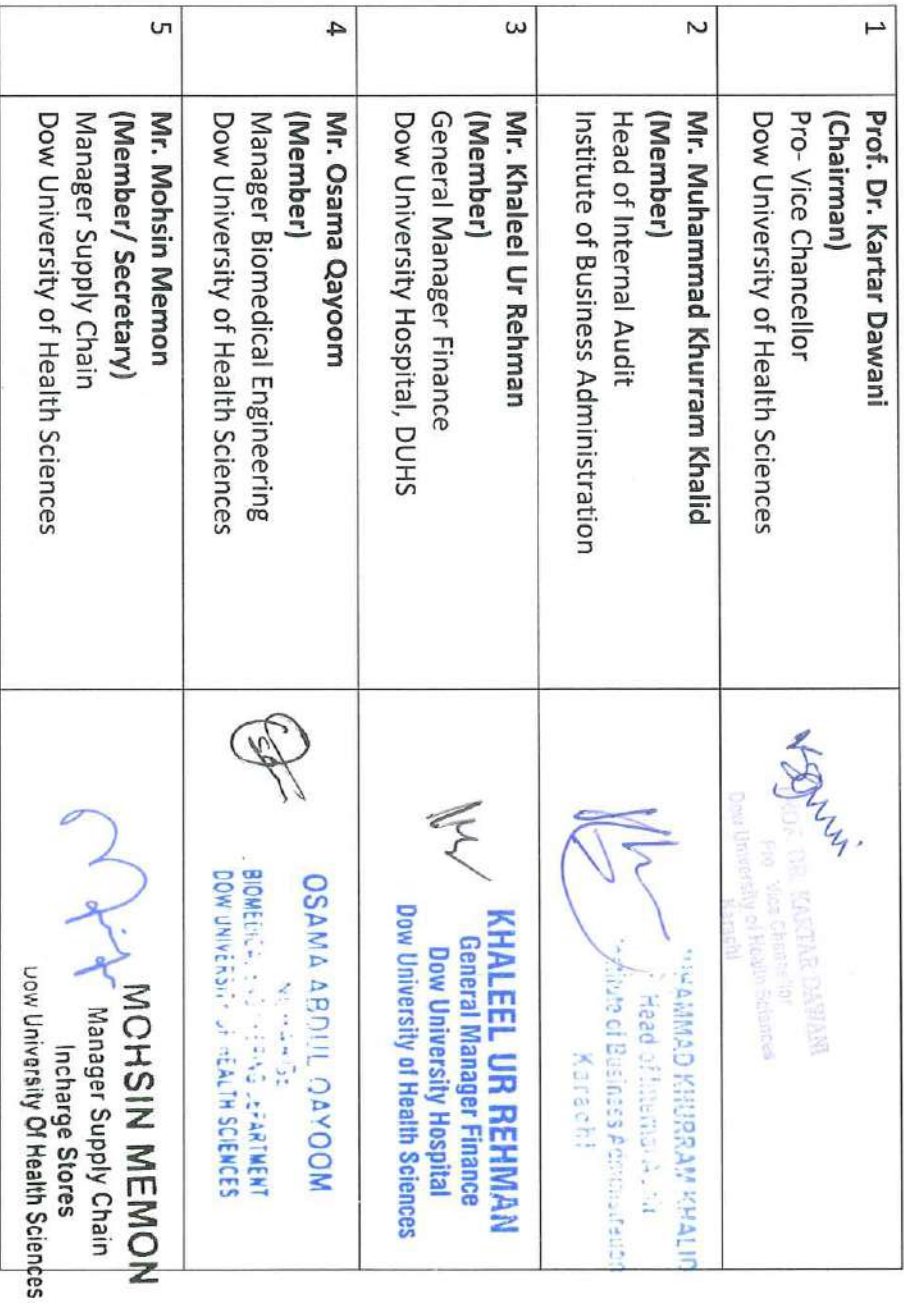 1
Prof. Dr. Kartar Dawani
(Chairman)
Pro- Vice Chancellor
Dow University of Health Sciences
PROF. DR. KARTAR DAWANI
Pro Vice Chancellor
Dow University of Health Sciences
Karachi
2
Mr. Muhammad Khurram Khalid
(Member)
Head of Internal Audit
Institute of Business Administration
MUHAMMAD KHURRAM KHALID
Head of Internal Audit
Institute of Business Administration
Karachi
3
Mr. Khaleel Ur Rehman
(Member)
General Manager Finance
Dow University Hospital, DUHS
KHALEEL UR REHMAN
General Manager Finance
Dow University Hospital
Dow University of Health Sciences
4
Mr. Osama Qayoom
(Member)
Manager Biomedical Engineering
Dow University of Health Sciences
OSAMA ABDUL QAYOOM
BIOMEDICAL ENGINEERING DEPARTMENT
DOW UNIVERSITY OF HEALTH SCIENCES
5
Mr. Mohsin Memon
(Member/ Secretary)
Manager Supply Chain
Dow University of Health Sciences
MOHSIN MEMON
Manager Supply Chain
Incharge Stores
Dow University Of Health Sciences